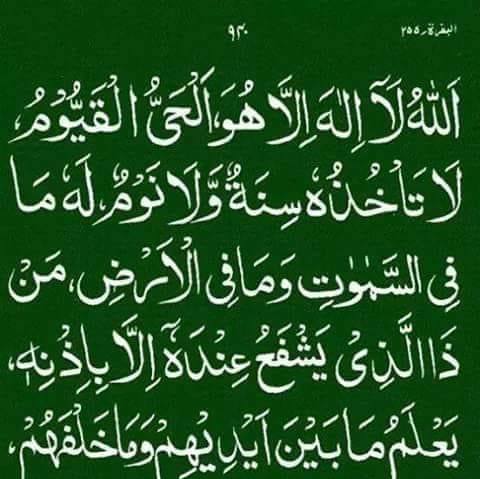 البقرة ـ ٢٥٥
اَللّٰهُ لَآ اِلٰهَ اِلَّا هُوَ، اَلْحَيُّ الْقَيُّوْمُ،
لَا تَأْخُذُهٗ سِنَةٌ وَّلَا نَوْمٌ، لَهٗ مَا
فِى السَّمٰوٰتِ وَمَا فِى الْاَرْضِ، مَنْ
ذَا الَّذِىْ يَشْفَعُ عِنْدَهٗٓ اِلَّا بِاِذْنِهٖ،
يَعْلَمُ مَا بَيْنَ اَيْدِيْهِمْ وَمَا خَلْفَهُمْ،